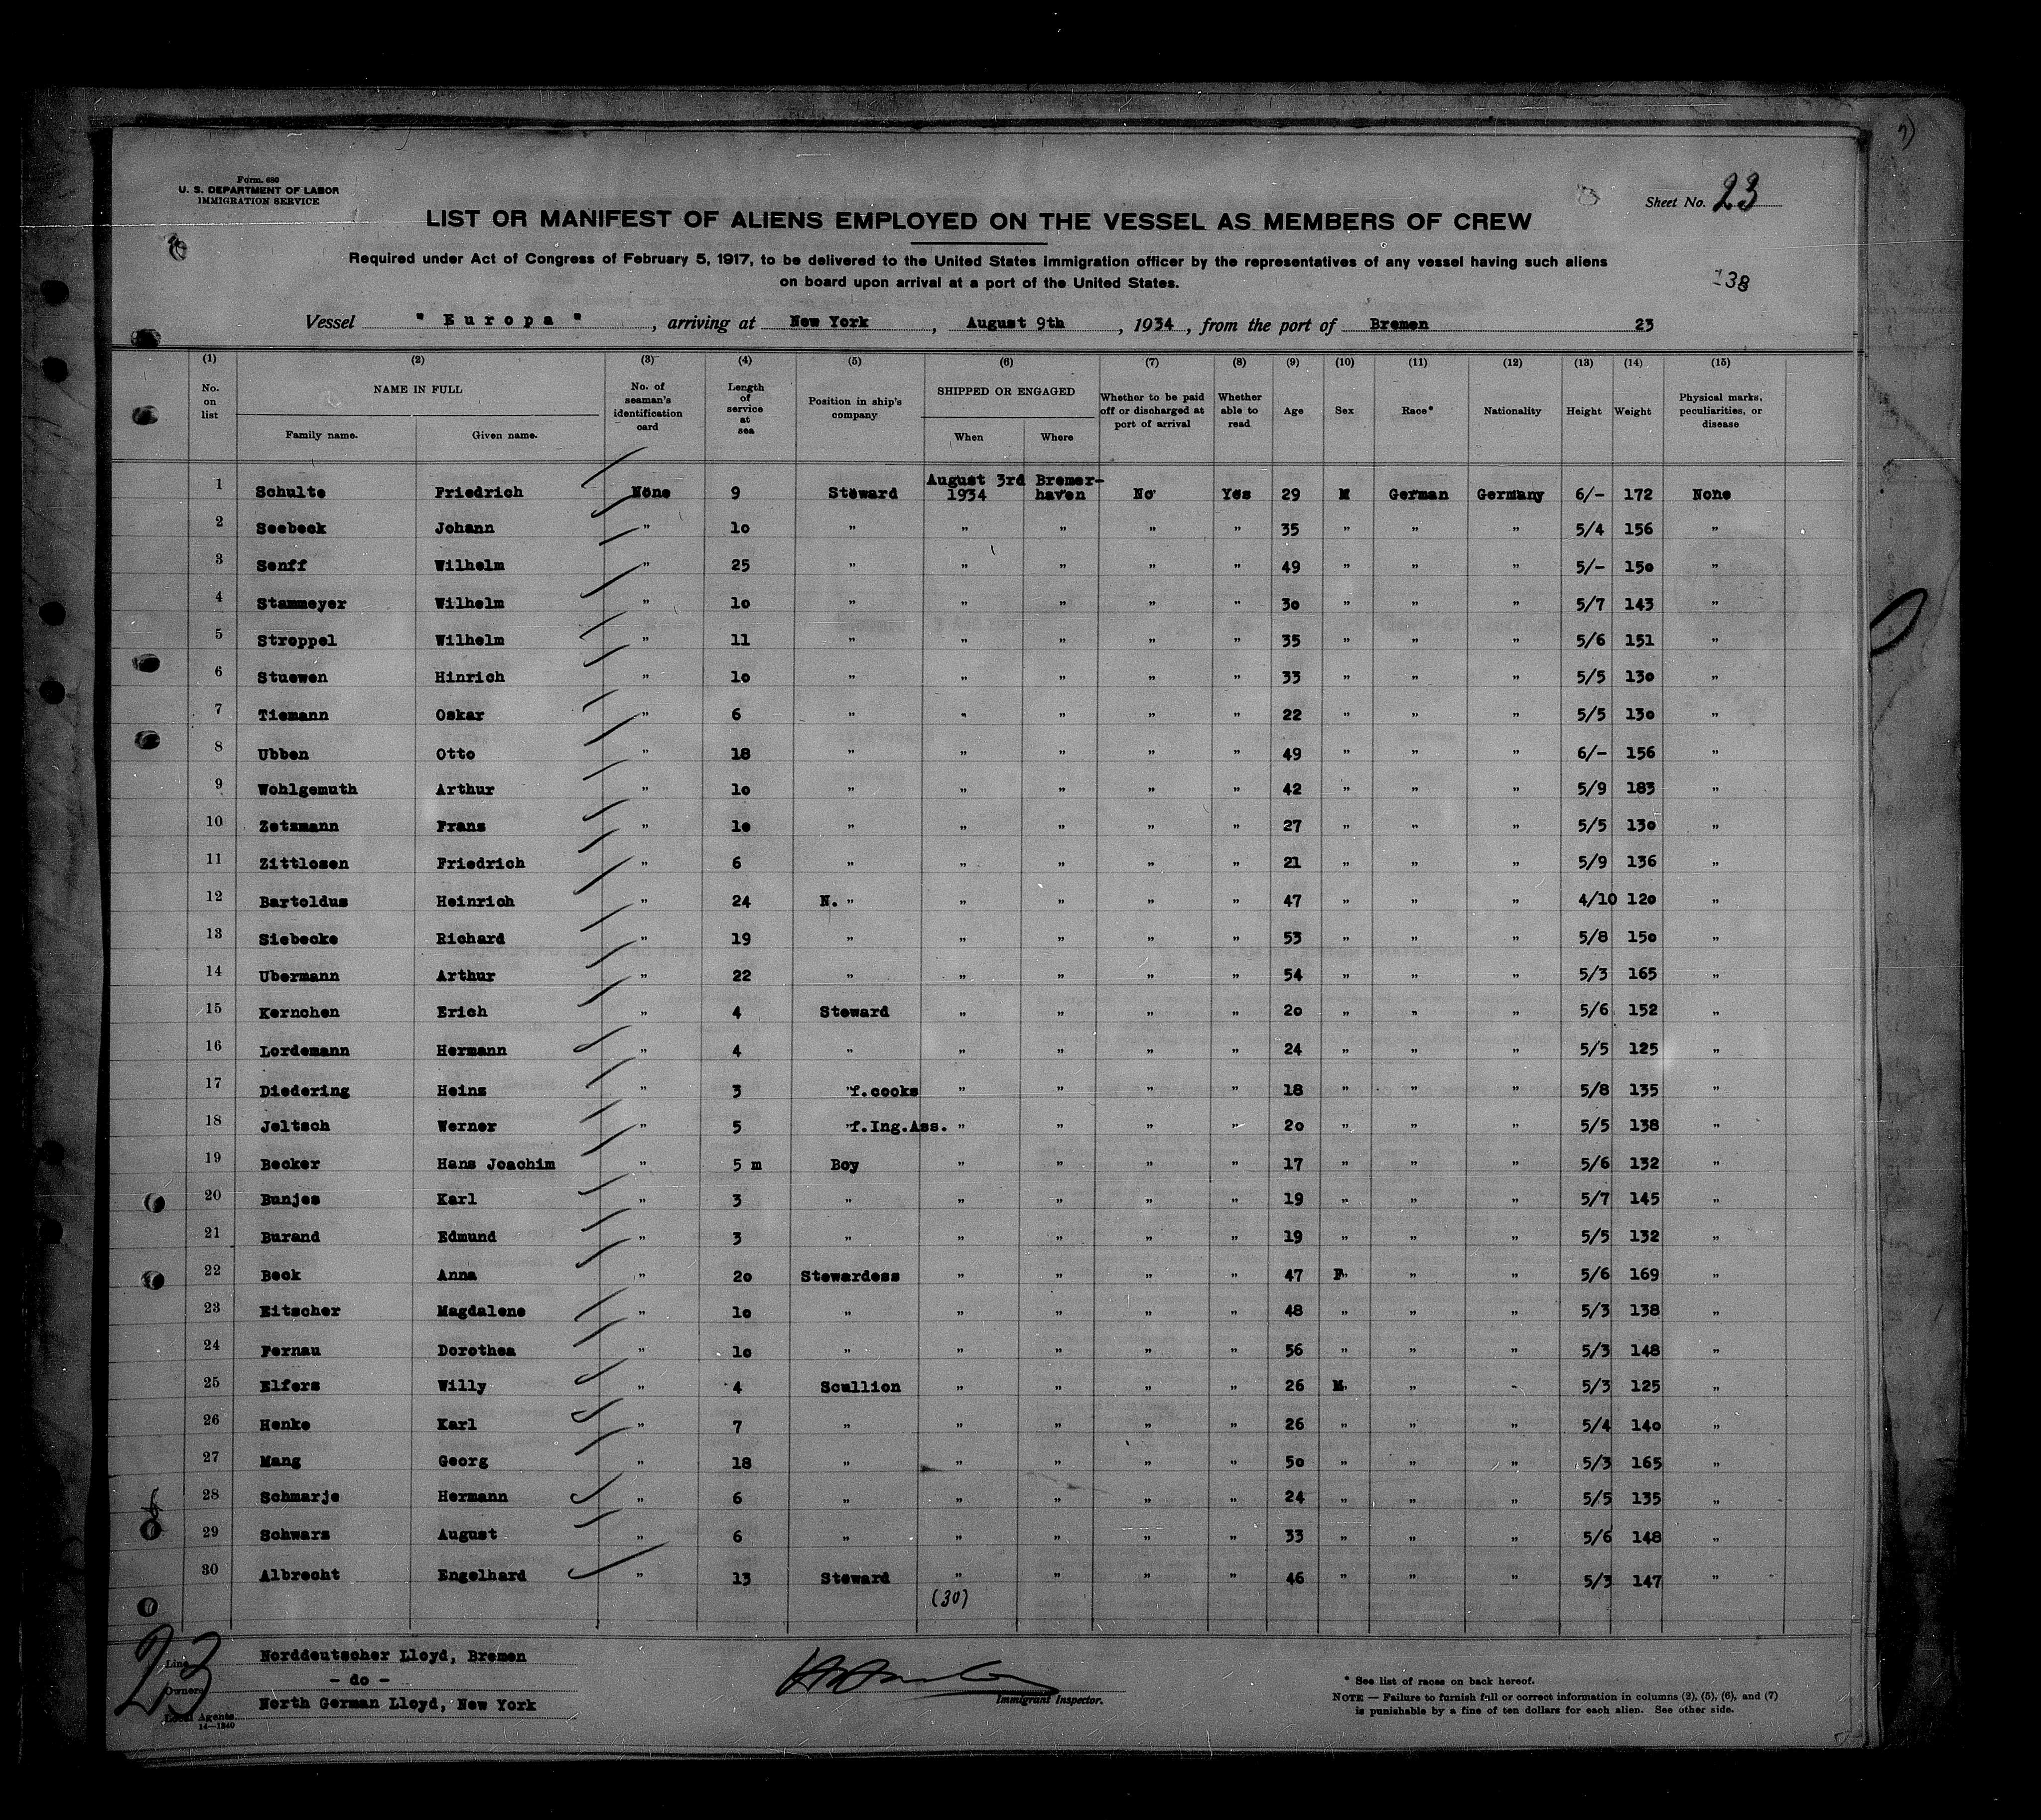 Form. 680
U. S. DEPARTMENT OF LABOR
IMMIGRATION SERVICE
Sheet No. 23
LIST OR MANIFEST OF ALIENS EMPLOYED ON THE VESSEL AS MEMBERS OF CREW
Required under Act of Congress of February 5, 1917, to be delivered to the United States immigration officer by the representatives of any vessel having such aliens
on board upon arrival at a port of the United States.
38
Vessel " Europa " , arriving at New York , August 9th , 1934 , from the port of Bremen 23
(1) (2) (3) (4) (5) (6) (7) (8) (9) (10) (11) (12) (13) (14) (15)
No. on list NAME IN FULL Family name. Given name. No. of seaman's identification card Length of service at sea Position in ship's company SHIPPED OR ENGAGED When Where Whether to be paid off or discharged at port of arrival Whether able to read Age Sex Race* Nationality Height Weight Physical marks, peculiarities, or disease
1 Schulte Friedrich None 9 Steward August 3rd 1934 Bremerhaven No Yes 29 M German Germany 6/- 172 None
2 Seebeck Johann " 10 " " " " " 35 " " " 5/4 156 "
3 Senff Wilhelm " 25 " " " " " 49 " " " 5/- 150 "
4 Stammeyer Wilhelm " 10 " " " " " 30 " " " 5/7 143 "
5 Streppel Wilhelm " 11 " " " " " 35 " " " 5/6 151 "
6 Stuewen Hinrich " 10 " " " " " 33 " " " 5/5 130 "
7 Tiemann Oskar " 6 " " " " " 22 " " " 5/5 130 "
8 Ubben Otto " 18 " " " " " 49 " " " 6/- 156 "
9 Wohlgemuth Arthur " 10 " " " " " 42 " " " 5/9 183 "
10 Zetzmann Franz " 10 " " " " " 27 " " " 5/5 130 "
11 Zittlosen Friedrich " 6 " " " " " 21 " " " 5/9 136 "
12 Bartoldus Heinrich " 24 N. " " " " " 47 " " " 4/10 120 "
13 Siebecke Richard " 19 " " " " " 53 " " " 5/8 150 "
14 Ubermann Arthur " 22 " " " " " 54 " " " 5/3 165 "
15 Kernchen Erich " 4 Steward " " " " 20 " " " 5/6 152 "
16 Lordemann Hermann " 4 " " " " " 24 " " " 5/5 125 "
17 Diedering Heinz " 3 "f.cooks " " " " 18 " " " 5/8 135 "
18 Jeltsch Werner " 5 "f.Ing.Ass. " " " " 20 " " " 5/5 138 "
19 Becker Hans Joachim " 5 m Boy " " " " 17 " " " 5/6 132 "
20 Bunjes Karl " 3 " " " " " 19 " " " 5/7 145 "
21 Burand Edmund " 3 " " " " " 19 " " " 5/5 132 "
22 Beck Anna " 20 Stewardess " " " " 47 F " " 5/6 169 "
23 Eitscher Magdalene " 10 " " " " " 48 " " " 5/3 138 "
24 Fernau Dorothea " 10 " " " " " 56 " " " 5/3 148 "
25 Elfers Willy " 4 Scullion " " " " 26 M " " 5/3 125 "
26 Henke Karl " 7 " " " " " 26 " " " 5/4 140 "
27 Mang Georg " 18 " " " " " 50 " " " 5/3 165 "
28 Schmarje Hermann " 6 " " " " " 24 " " " 5/5 135 "
29 Schwarz August " 6 " " " " " 33 " " " 5/6 148 "
30 Albrecht Engelhard " 13 Steward " " " " 46 " " " 5/3 147 "
(30)
23
Line Norddeutscher Lloyd, Bremen
Owners - do -
Local Agents North German Lloyd, New York
14—1240
Immigrant Inspector.
* See list of races on back hereof.
NOTE — Failure to furnish full or correct information in columns (2), (5), (6), and (7)
is punishable by a fine of ten dollars for each alien. See other side.